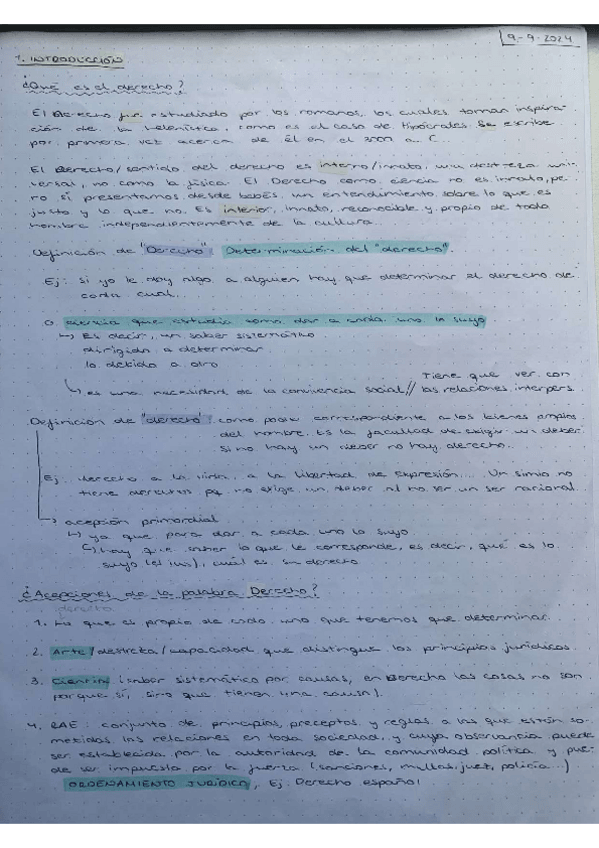 9-9-2024
1. INTRODUCCIÓN
¿Qué es el derecho?
El Derecho fue estudiado por los romanos, los cuales toman inspira-
ción de la helenística, como es el caso de Hipócrates. Se escribe
por primera vez acerca de él en el 2000 a.C.
El Derecho/sentido del derecho es interno/innato, una destreza uni-
versal, no como la física. El Derecho como ciencia no es innato, pe-
ro sí presentamos desde bebés, un entendimiento sobre lo que es
justo y lo que no. Es interior, innato, reconocible y propio de todo
hombre independientemente de la cultura.
Definición de "Derecho": Determinación del "derecho".
Ej: si yo le doy algo a alguien hay que determinar el derecho de
cada cual...
O ciencia que estudia como dar a cada uno lo suyo
↳ Es decir, un saber sistemático
dirigido a determinar
lo debido a otro
↳ es una necesidad de la convivencia social // Tiene que ver con
las relaciones interpers.
Definición de "derecho": como poder correspondiente a los bienes
del hombre. Es la facultad de exigir un deber
si no hay un deber no hay derecho.
Ej: derecho a la vida, a la libertad de expresión.... Un simio no
tiene derechos pq no exige un deber al no ser un ser racional.
→ acepción primordial
↳ ya que para dar a cada uno lo suyo
↳ hay que saber lo que le corresponde, es decir, qué es lo
suyo (el ius), cuál es su derecho
¿Acepciones de la palabra Derecho?
derecho
1. Lo que es propio de cada uno que tenemos que determinar.
2. Arte/destreza/capacidad que distingue los principios jurídicos.
3. Ciencia (saber sistemático por causas, en Derecho las cosas no son
porque sí, sino que tienen una causa).
4. RAE: conjunto de principios, preceptos y reglas a las que están so-
metidas las relaciones en toda sociedad, y cuya observancia puede
ser establecida por la autoridad de la comunidad política y pue-
de ser impuesta por la fuerza (sanciones, multas, juez, policía...)
ORDENAMIENTO JURÍDICO, Ej: Derecho español